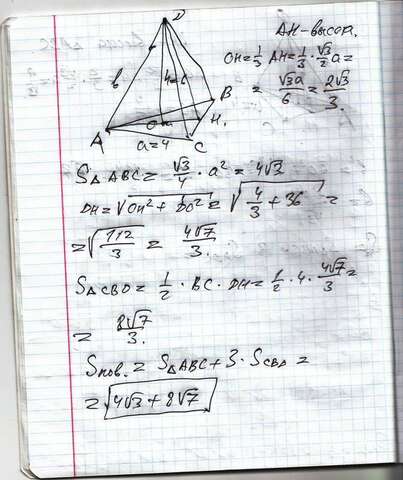 D
AH - высот.
b
h=6
OH = 1/3 AH = 1/3 · √3/2 a =
= √3a/6 = 2√3/3.
B
O
H.
A
a=4
C
S△ABC = √3/4 · a² = 4√3
DH = √OH² + DO² = √(4/3 + 36) =
= √(112/3) = 4√7/3.
S△CBD = 1/2 · BC · DH = 1/2 · 4 · 4√7/3 =
= 8√7/3.
Sпов. = S△ABC + 3 · SCBD =
= √4√3 + 8√7